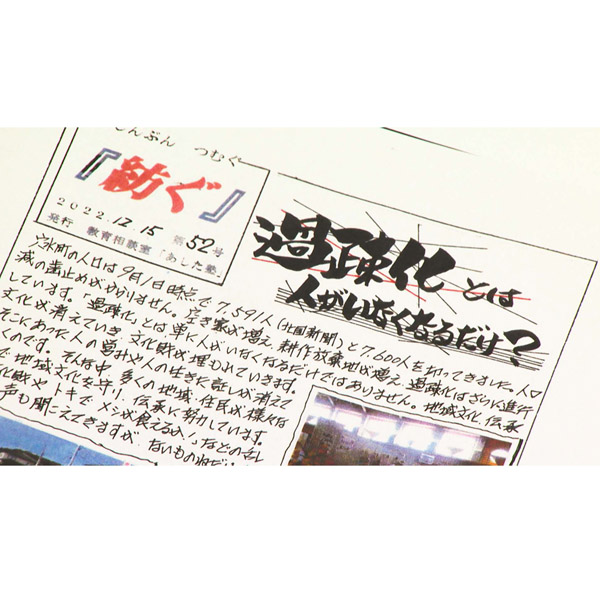 しんぶん つむぐ
『紡ぐ』
2022.12.15 第52号
発行 教育相談室「あした塾」
過疎化とは
人がいなくなるだけ?
穴水町の人口は9月1日時点で7,591人(北國新聞)と7,600人を切ってきました。人口
減の歯止めがかかりません。空き家が増え、耕作放棄地が増え、過疎化はさらに進行
しています。「過疎化」とは単に人がいなくなるだけではありません。地域文化、伝承
文化が消えていき、文化財が埋もれていきます。
そこにあった人の営みや人の生きた証しが消えて
くのです。そんな中、多くの地域住民が様々な
で地域文化を守り、伝承に努力しています。
化財やトキで、メシが食えるか」などの
声も聞こえてきますが、ないものねだ